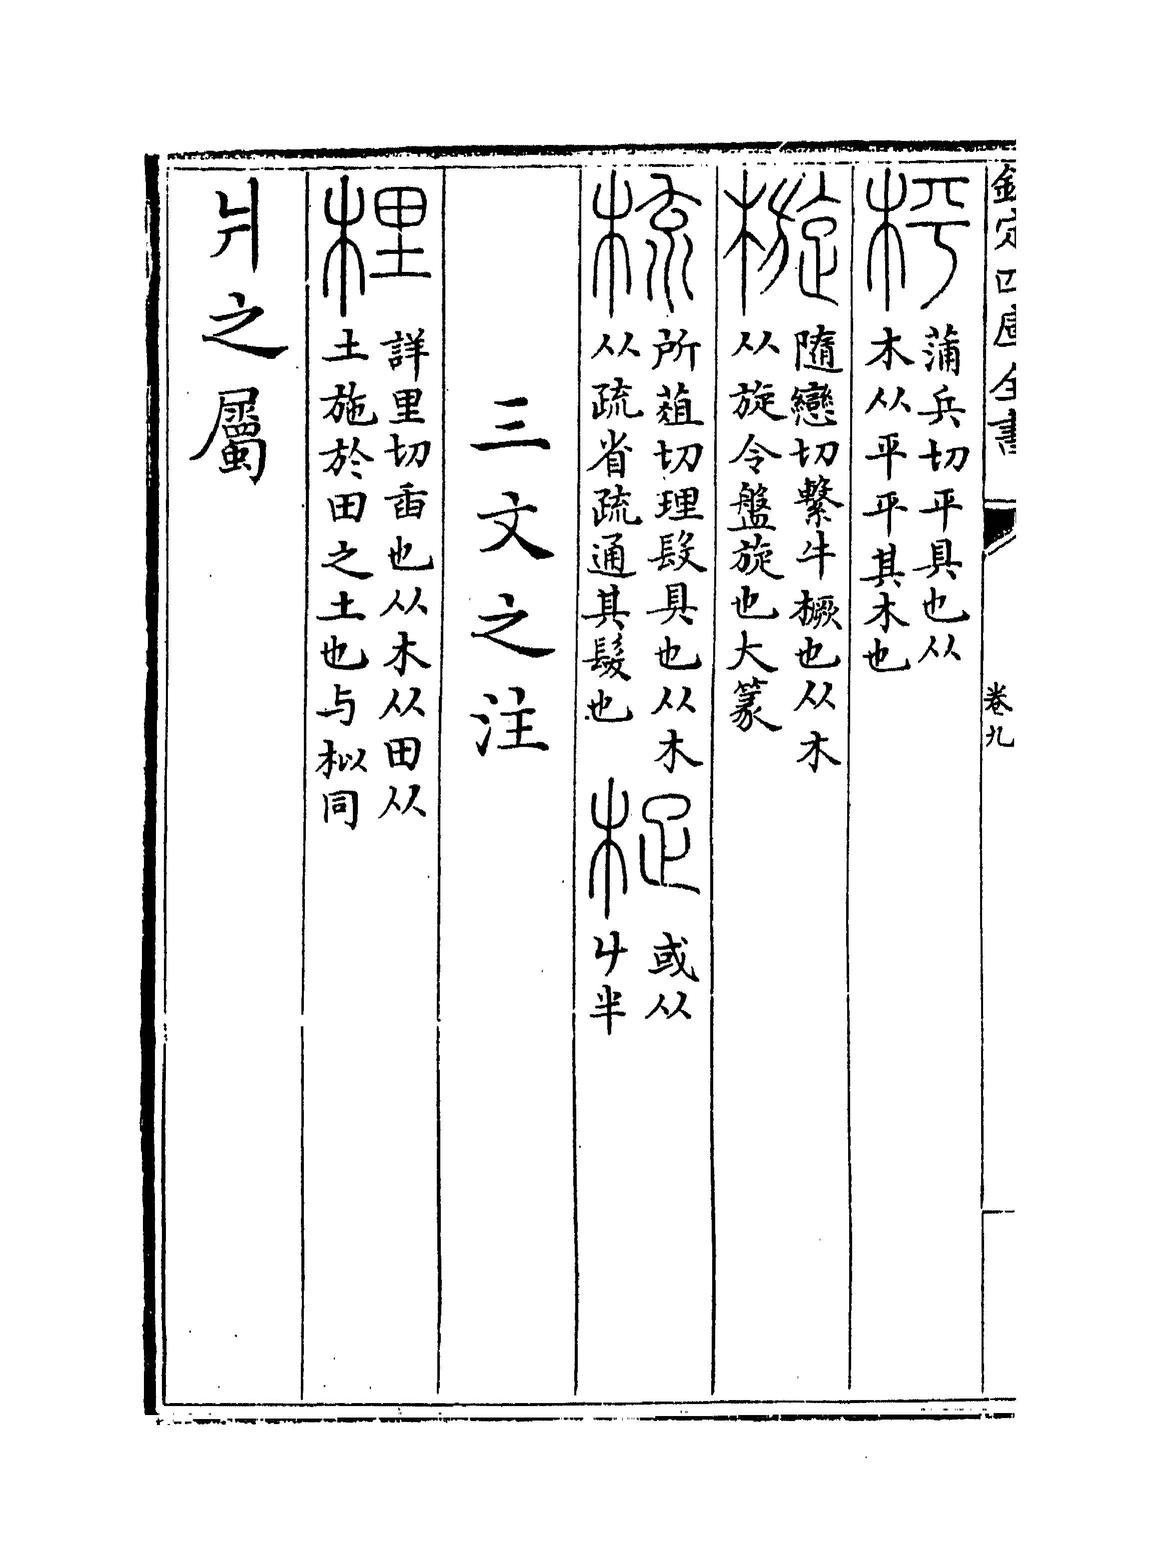 欽定四庫全書
卷九
枰
蒲兵切平具也从
木从平平其木也
㯀
隨戀切繫牛橛也从木
从旋令盤旋也大篆
梳
所葅切理髮具也从木
从疏省疏通其髮也
或从
半
三文之注
梩
詳里切臿也从木从田从
土施於田之土也与梠同
爿之屬